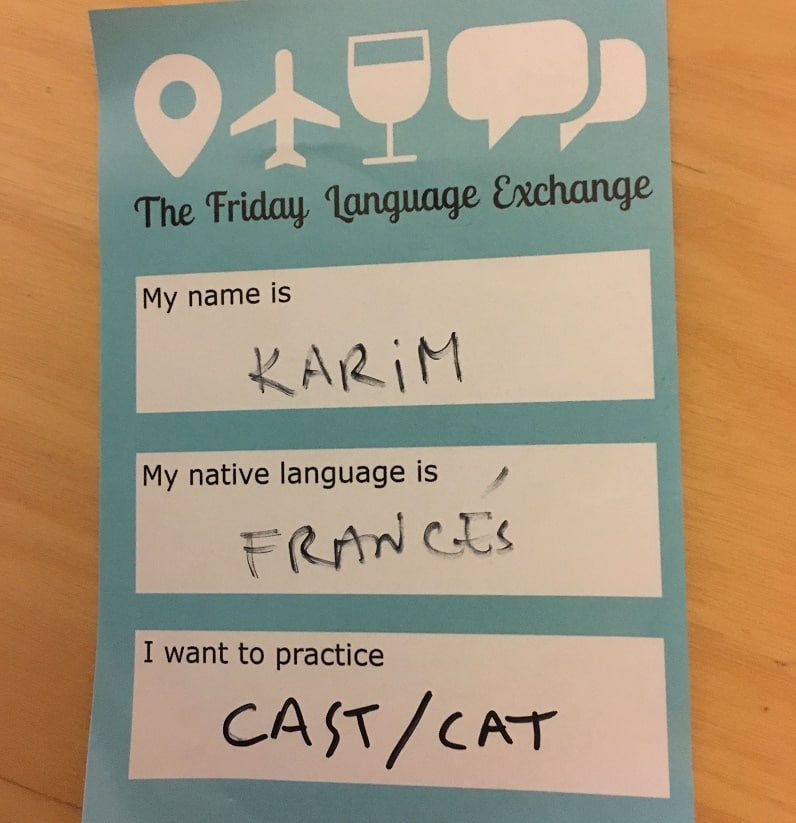 The Friday Language Exchange
My name is
KARiM
My native language is
FRANCÉS
I want to practice
CAST/CAT